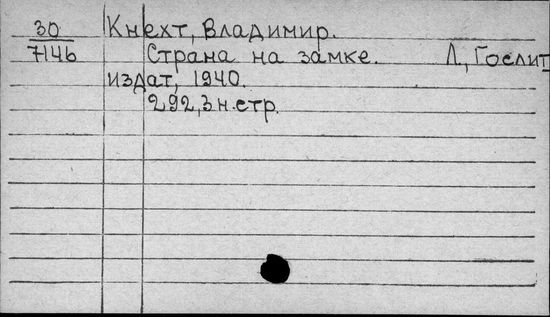 30 Кнехт, Владимир.
7146 Страна на замке. Л, Гослит
издат, 1940.
292, 3 н. стр.